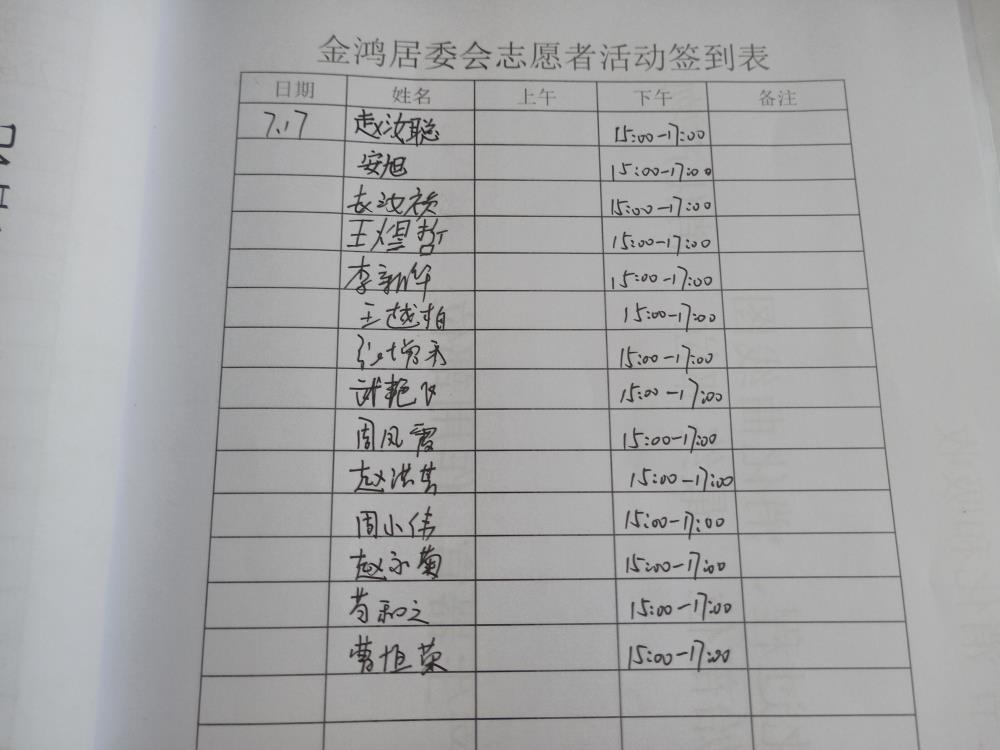 金鸿居委会志愿者活动签到表
日期 姓名 上午 下午 备注
7.17 赵汝聪 15:00-17:00
安旭 15:00-17:00
15:00-17:00
王煜哲 15:00-17:00
李新华 15:00-17:00
王越柏 15:00-17:00
15:00-17:00
艳飞 15:00-17:00
周凤霞 15:00-17:00
赵洪英 15:00-17:00
周小伟 15:00-17:00
赵永菊 15:00-17:00
苟和之 15:00-17:00
曹恒荣 15:00-17:00